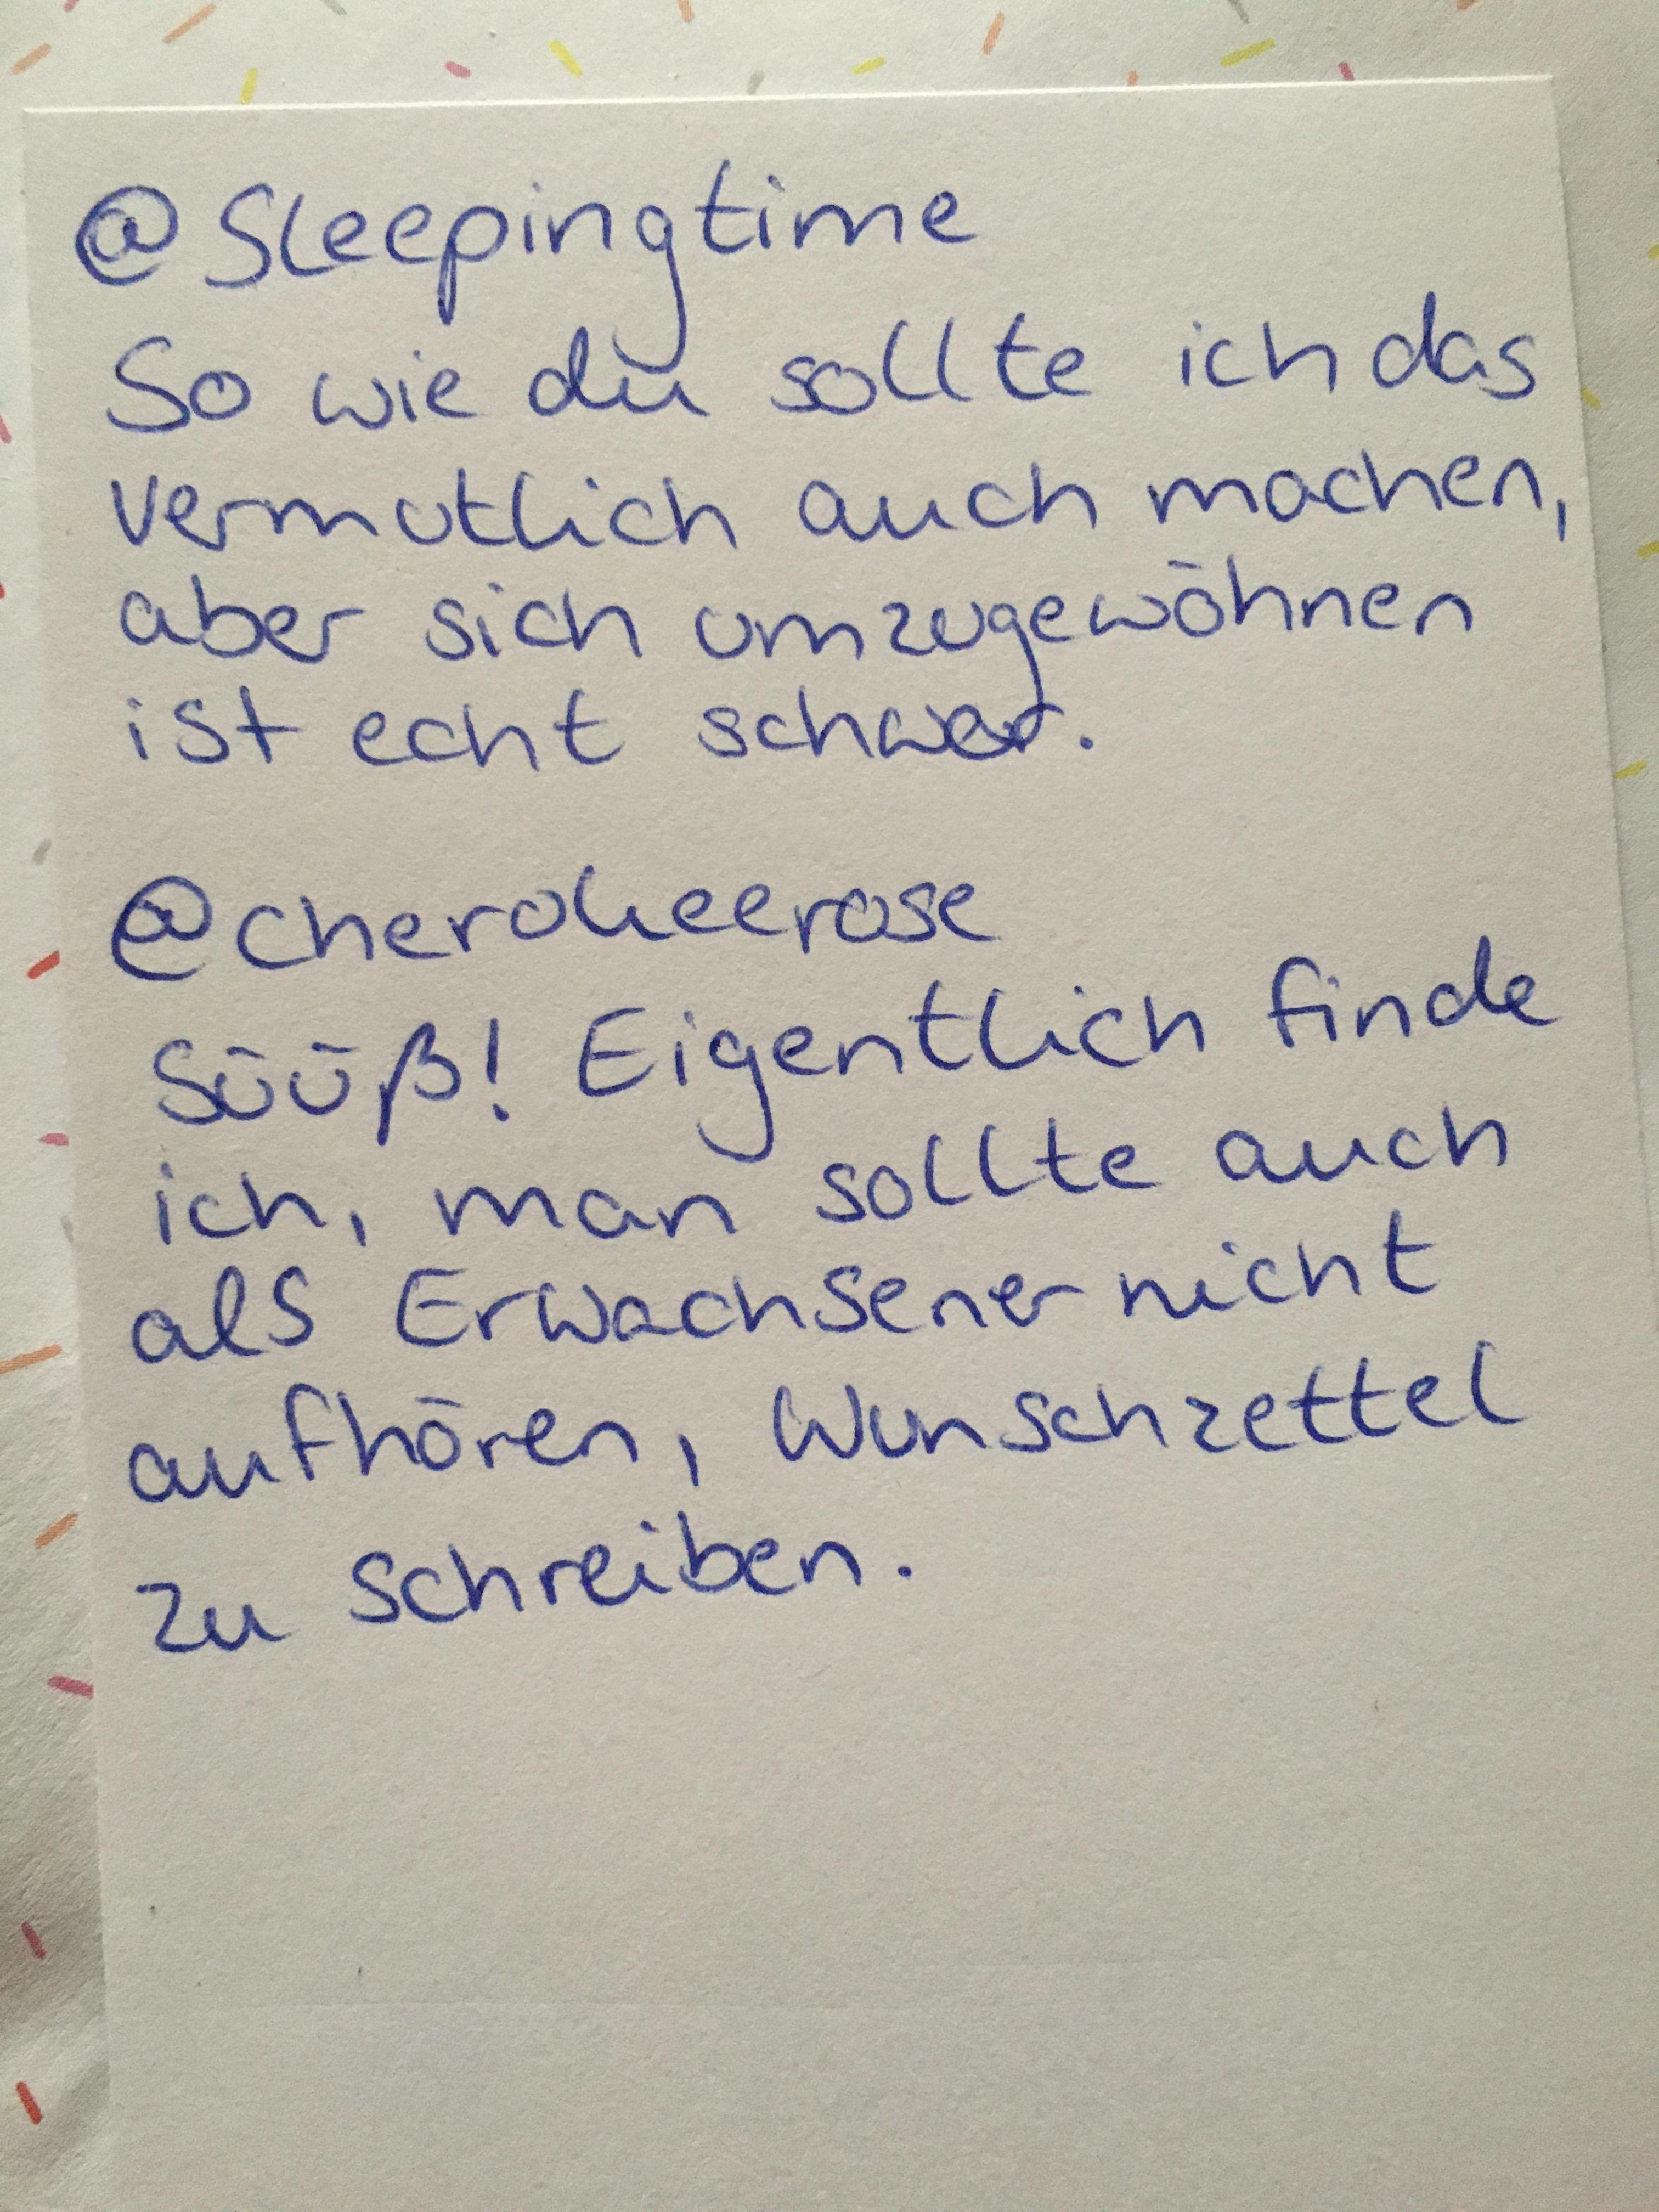 @Sleepingtime
So wie du sollte ich das
vermutlich auch machen,
aber sich umzugewöhnen
ist echt schwer.
@cherokeerose
Süüß! Eigentlich finde
ich, man sollte auch
als Erwachsener nicht
aufhören, Wunschzettel
zu schreiben.